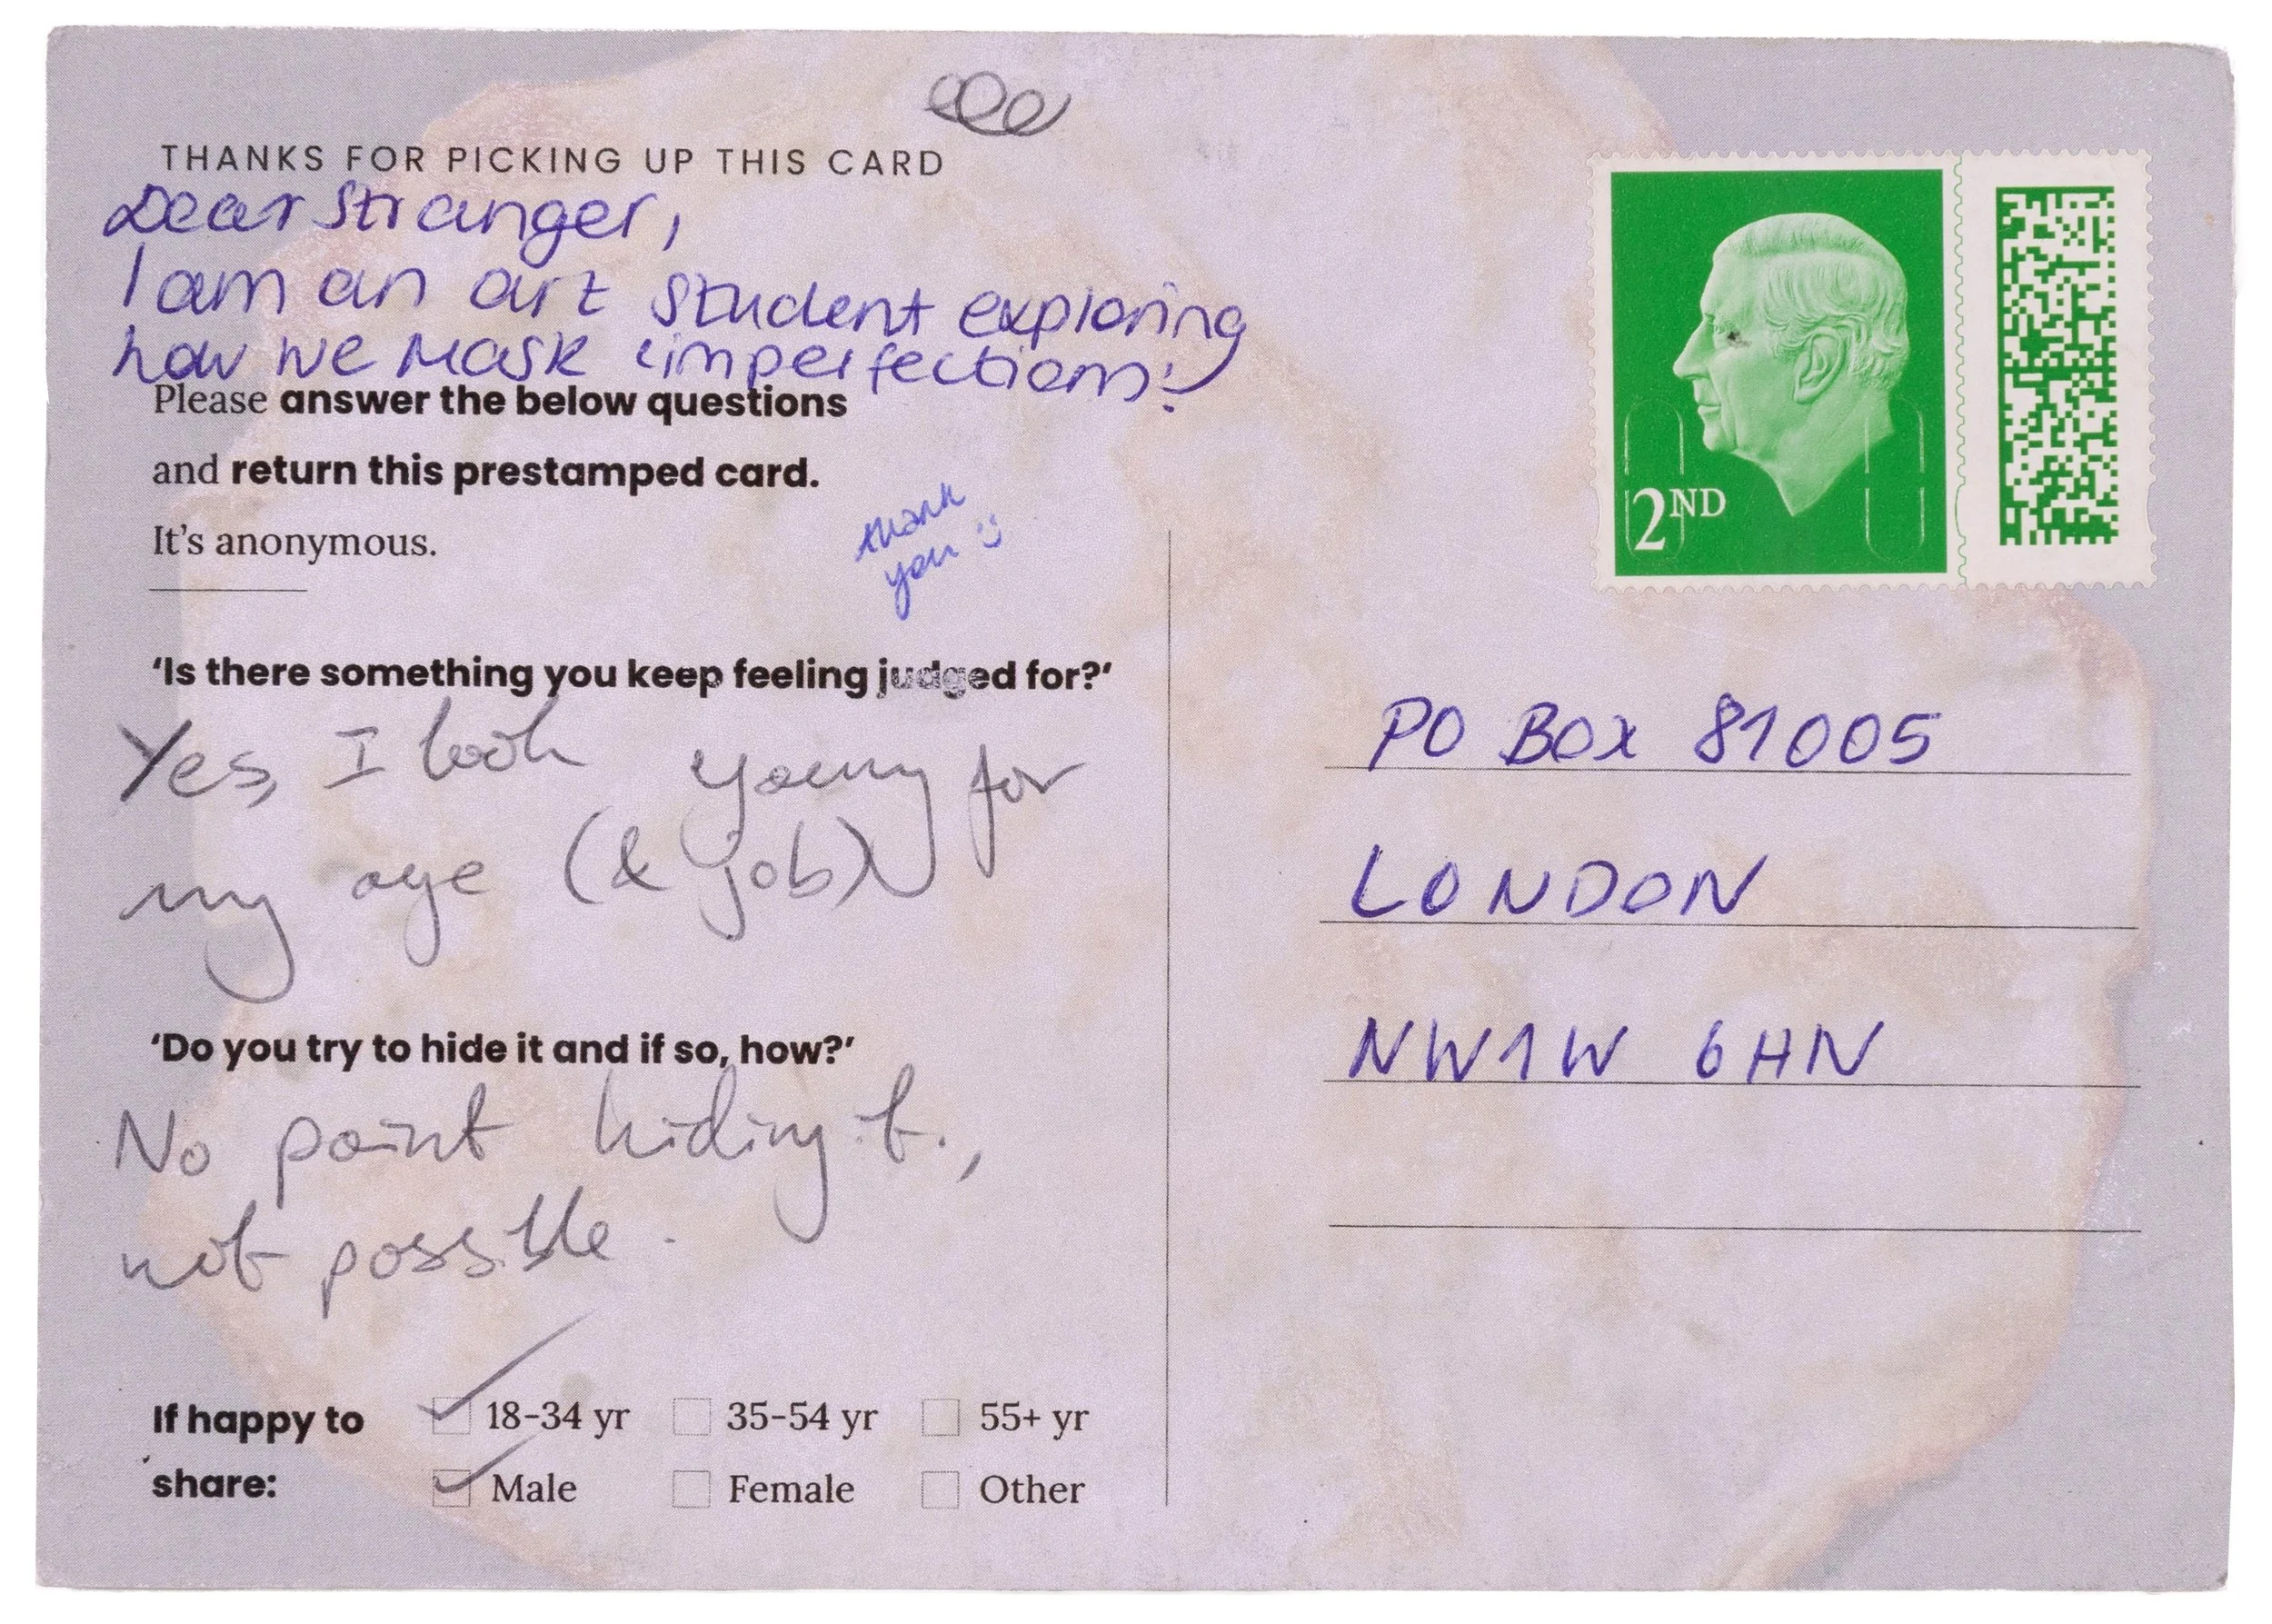 THANKS FOR PICKING UP THIS CARD
Dear Stranger,
I am an art student exploring
how we mask imperfections!
Please answer the below questions
and return this prestamped card.
It's anonymous.
thank
you :)
'Is there something you keep feeling judged for?'
Yes, I look young for
my age (& job)
'Do you try to hide it and if so, how?'
No point hiding it.,
not possible.
If happy to
share:
18-34 yr 35-54 yr 55+ yr
Male Female Other
2ND
PO BOX 81005
LONDON
NW1W 6HN